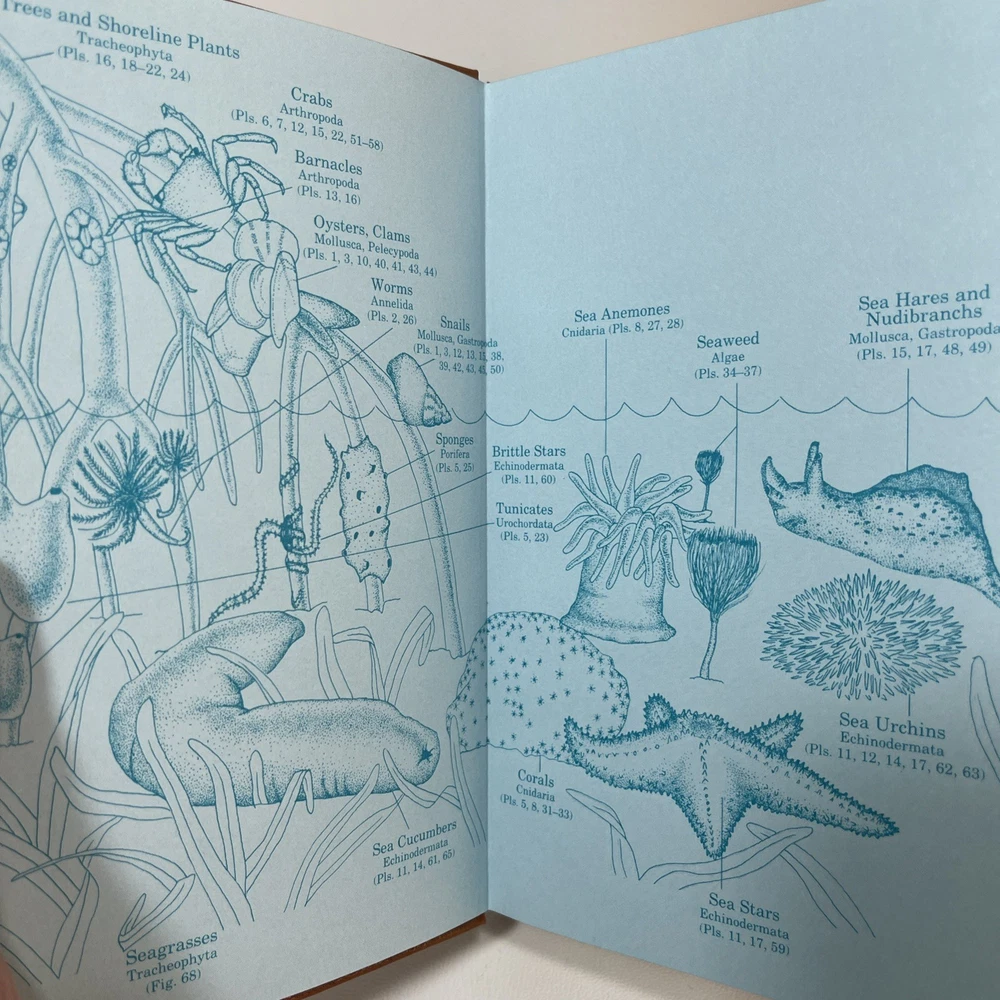 Trees and Shoreline Plants
Tracheophyta
(Pls. 16, 18–22, 24)
Crabs
Arthropoda
(Pls. 6, 7, 12, 15, 22, 51–58)
Barnacles
Arthropoda
(Pls. 13, 16)
Oysters, Clams
Mollusca, Pelecypoda
(Pls. 1, 3, 10, 40, 41, 43, 44)
Worms
Annelida
(Pls. 2, 26)
Snails
Mollusca, Gastropoda
(Pls. 1, 3, 12, 13, 15, 38,
39, 42, 43, 45, 50)
Sponges
Porifera
(Pls. 5, 25)
Sea Cucumbers
Echinodermata
(Pls. 11, 14, 61, 65)
Seagrasses
Tracheophyta
(Fig. 68)
Sea Anemones
Cnidaria (Pls. 8, 27, 28)
Seaweed
Algae
(Pls. 34–37)
Sea Hares and
Nudibranchs
Mollusca, Gastropoda
(Pls. 15, 17, 48, 49)
Brittle Stars
Echinodermata
(Pls. 11, 60)
Tunicates
Urochordata
(Pls. 5, 23)
Sea Urchins
Echinodermata
(Pls. 11, 12, 14, 17, 62, 63)
Corals
Cnidaria
(Pls. 5, 8, 31–33)
Sea Stars
Echinodermata
(Pls. 11, 17, 59)